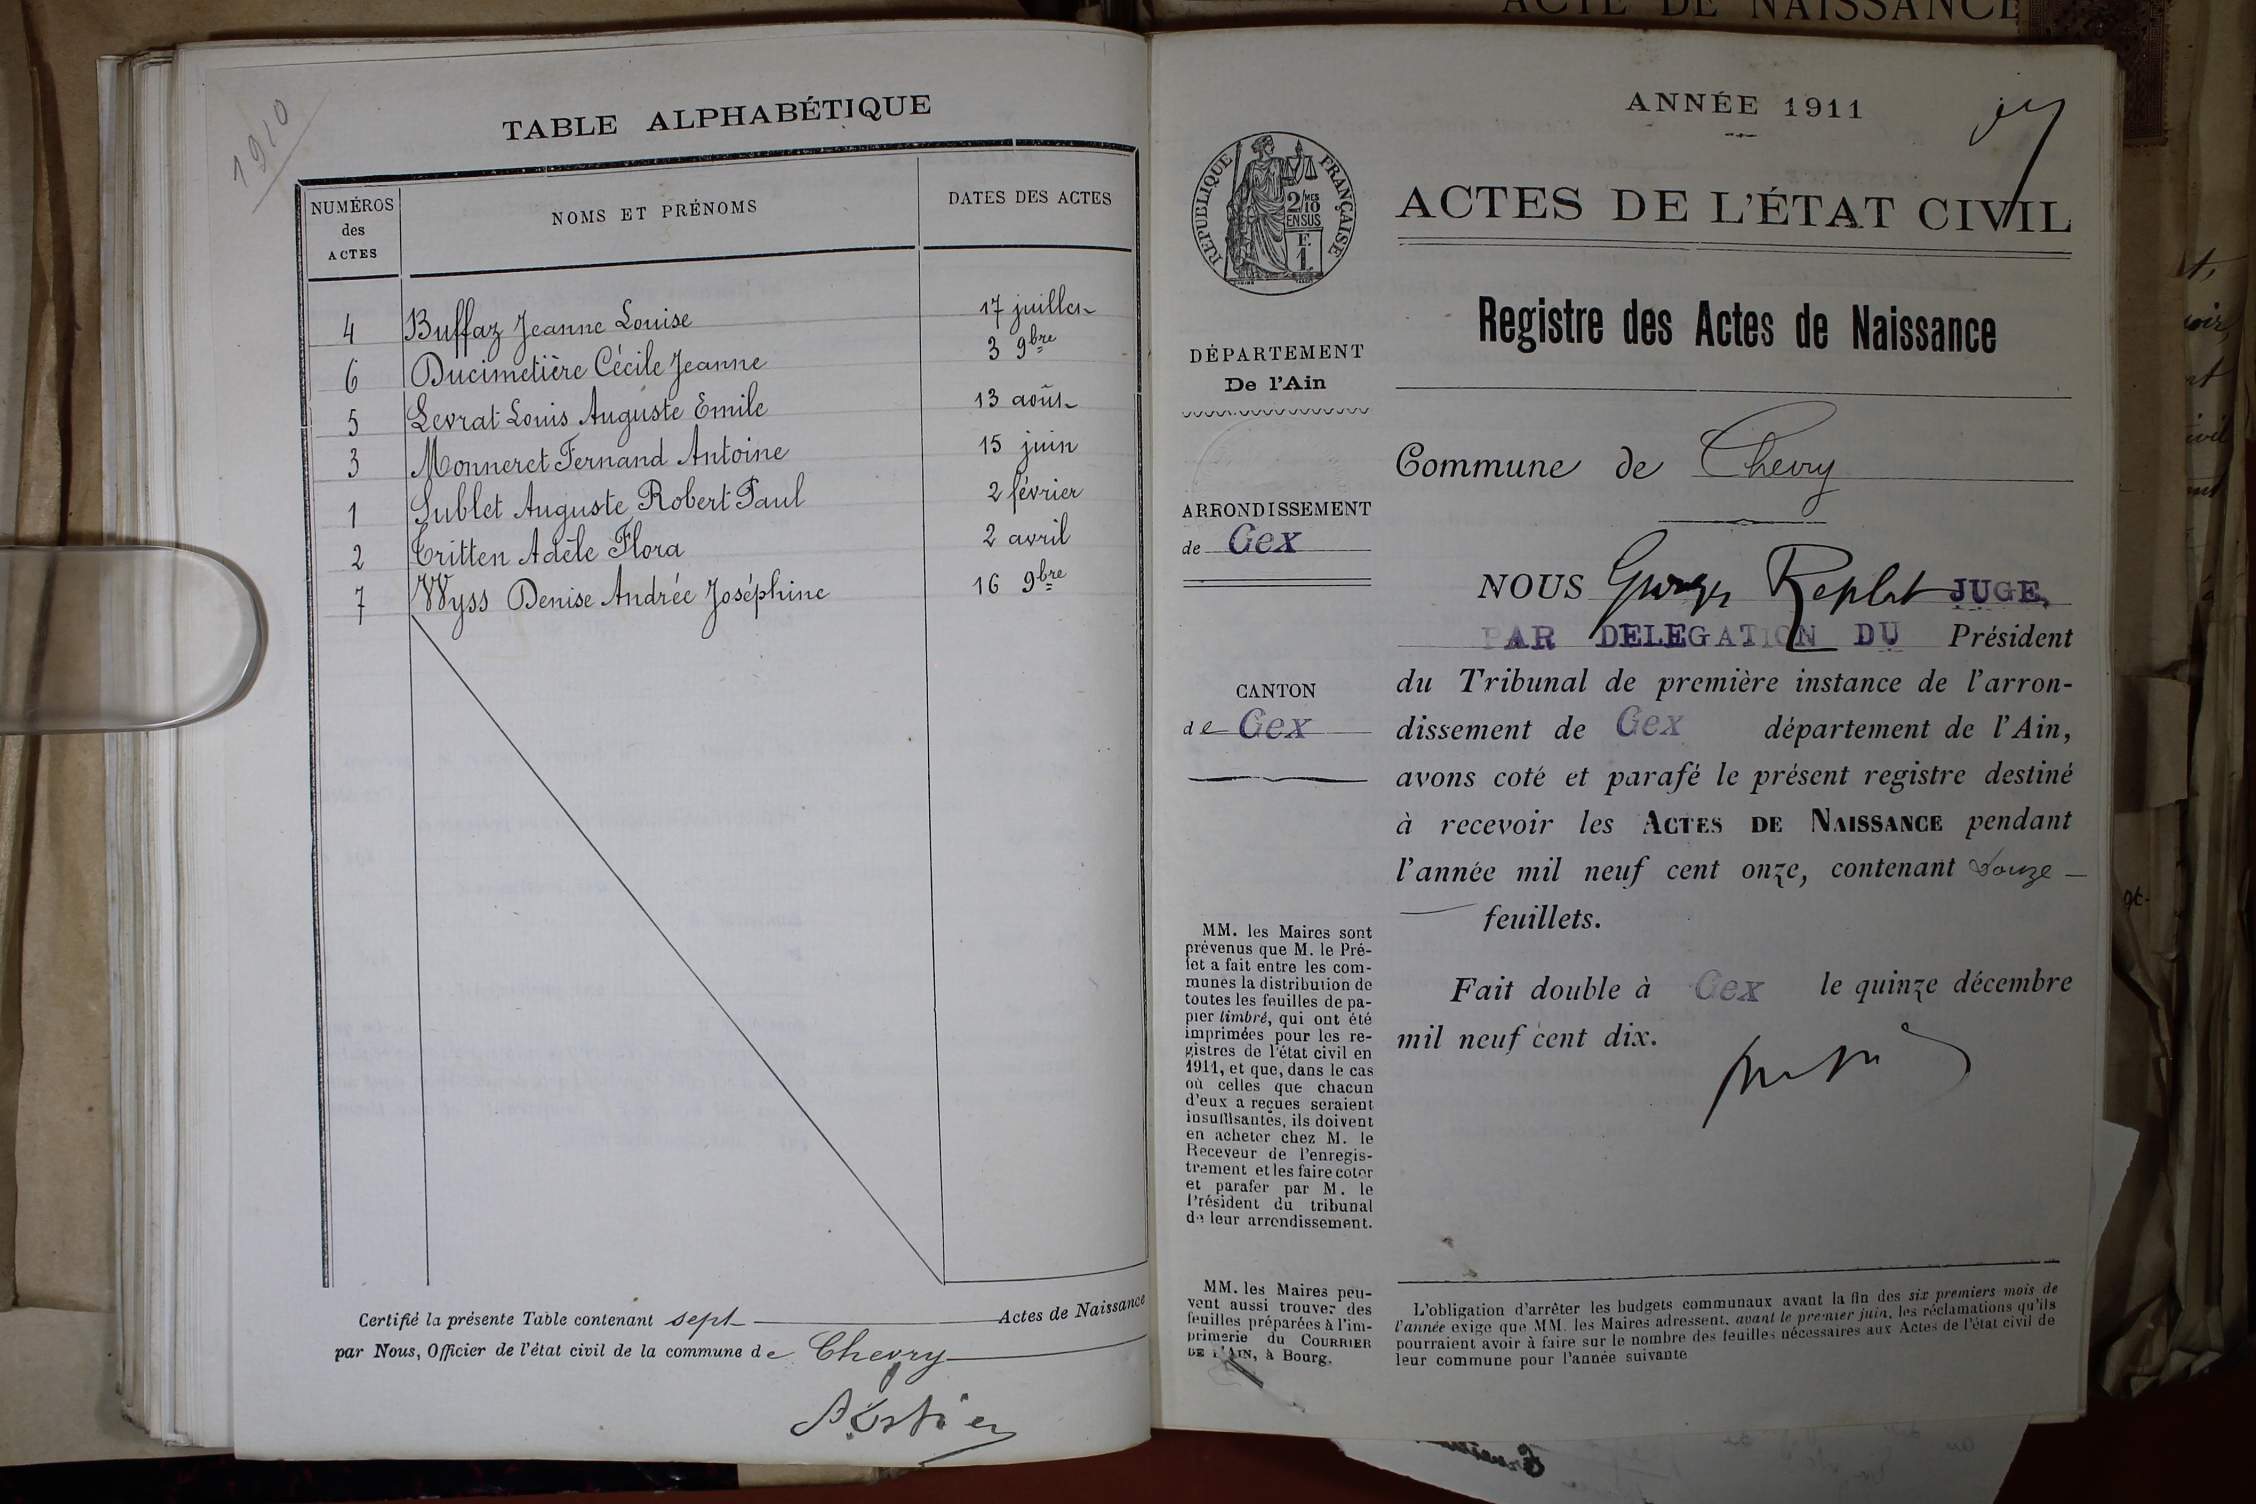 1910
TABLE ALPHABÉTIQUE
NUMÉROS des ACTES
NOMS ET PRÉNOMS
DATES DES ACTES
4 Buffaz Jeanne Louise 17 juillet
6 Ducimetière Cécile Jeanne 3 9bre
5 Levrat Louis Auguste Emile 13 août
3 Monneret Fernand Antoine 15 juin
1 Sublet Auguste Robert Paul 2 février
2 Critten Adèle Flora 2 avril
7 Wyss Denise Andrée Joséphine 16 9bre
Certifié la présente Table contenant sept Actes de Naissance
par Nous, Officier de l'état civil de la commune de Chevry
ACTE DE NAISSANCE
ANNÉE 1911
RÉPUBLIQUE FRANÇAISE
2/10 MES
EN SUS
F.
1.
ACTES DE L'ÉTAT CIVIL
Registre des Actes de Naissance
DÉPARTEMENT
De l'Ain
ARRONDISSEMENT
de Gex
CANTON
de Gex
MM. les Maires sont
prévenus que M. le Pré-
fet a fait entre les com-
munes la distribution de
toutes les feuilles de pa-
pier timbré, qui ont été
imprimées pour les re-
gistres de l'état civil en
1911, et que, dans le cas
où celles que chacun
d'eux a reçues seraient
insuffisantes, ils doivent
en acheter chez M. le
Receveur de l'enregis-
trement et les faire coter
et parafer par M. le
Président du tribunal
de leur arrondissement.
MM. les Maires peu-
vent aussi trouver des
feuilles préparées à l'im-
primerie du COURRIER
DE L'AIN, à Bourg.
Commune de Chevry
NOUS Georges Replat JUGE,
PAR DELEGATION DU Président
du Tribunal de première instance de l'arron-
dissement de Gex département de l'Ain,
avons coté et parafé le présent registre destiné
à recevoir les ACTES DE NAISSANCE pendant
l'année mil neuf cent onze, contenant douze
feuillets.
Fait double à Gex le quinze décembre
mil neuf cent dix.
L'obligation d'arrêter les budgets communaux avant la fin des six premiers mois de
l'année exige que MM. les Maires adressent, avant le premier juin, les réclamations qu'ils
pourraient avoir à faire sur le nombre des feuilles nécessaires aux Actes de l'état civil de
leur commune pour l'année suivante